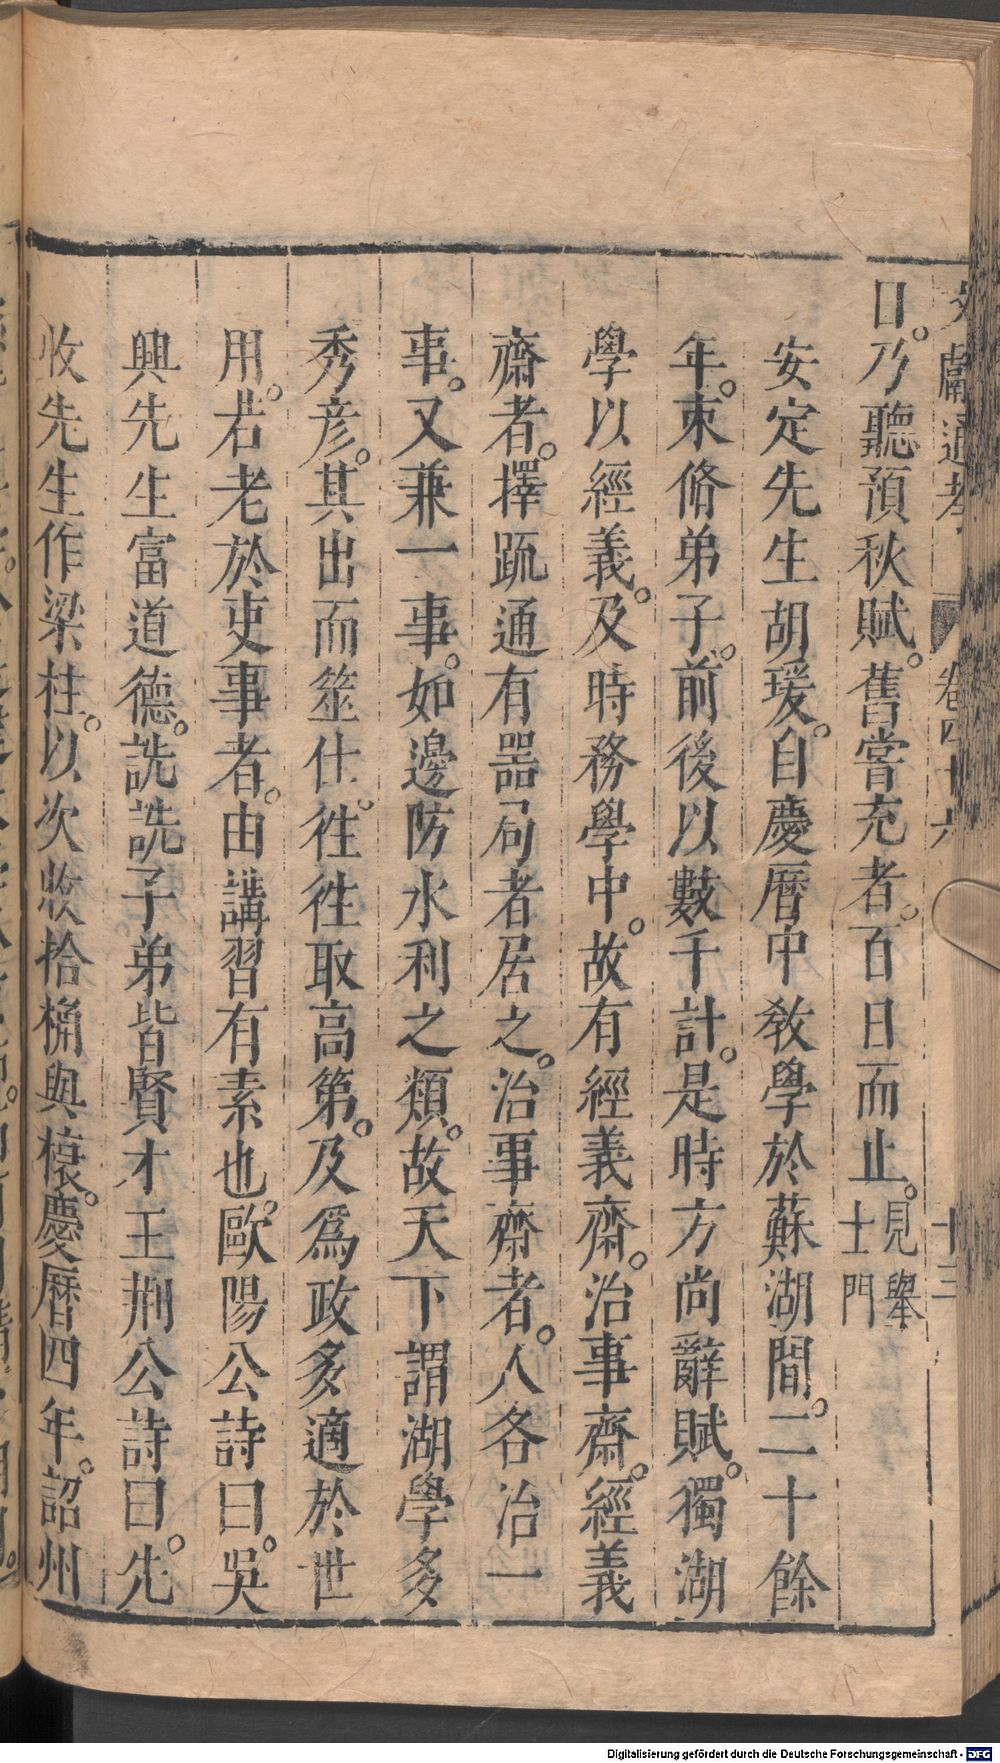 文獻通考 卷四十六 十三
日。乃聽預秋賦。舊嘗充者。百日而止。見舉士門
安定先生胡瑗。自慶曆中敎學於蘇湖間。二十餘
年。束脩弟子。前後以數千計。是時方尚辭賦。獨湖
學以經義。及時務學中。故有經義齋。治事齋。經義
齋者。擇疏通有噐局者居之。治事齋者。人各治一
事。又兼一事。如邊防水利之類。故天下謂湖學多
秀彦。其出而筮仕。徃徃取高第。及爲政多適於世
用。若老於吏事者。由講習有素也。歐陽公詩曰。吳
興先生富道德。詵詵子弟皆賢才王荆公詩曰。先
收先生作梁柱。以次收拾桷與榱。慶曆四年。詔州
Digitalisierung gefördert durch die Deutsche Forschungsgemeinschaft - DFG